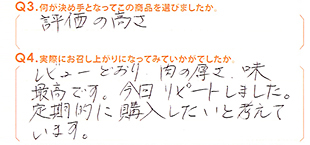 Q3.何が決め手となってこの商品を選びましたか。
評価の高さ
Q4.実際にお召し上がりになってみていかがでしたか。
レビューどおり 肉の厚さ、味
最高です。今回リピートしました。
定期的に購入したいと考えて
います。